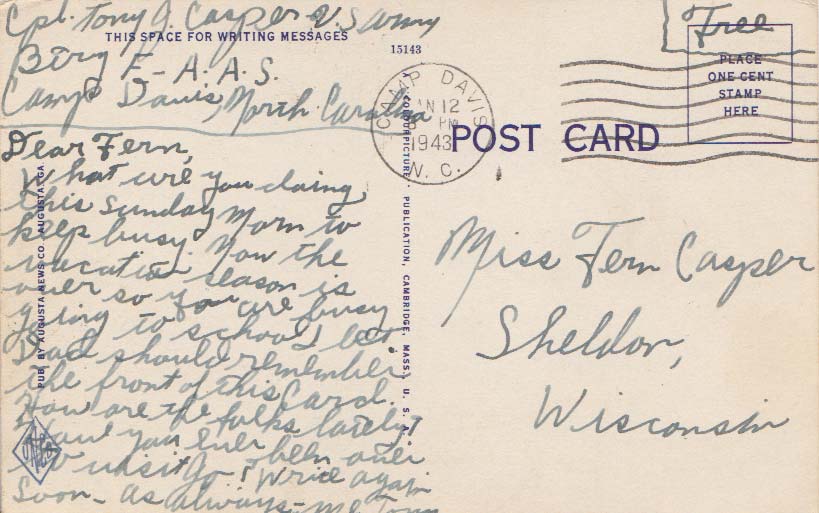 Cpl. Tony J. Casper U.S Army
THIS SPACE FOR WRITING MESSAGES
Btry E-A.A.S.
Camp Davis, North Carolina
Dear Fern,
What are you doing
this Sunday Morn to
keep busy. Now the
vacation season is
over so you are busy
going to school I bet
Dad should remember
the front of this Card.
How are the folks lately?
Have you ever been over
to visit Jo? Write again
Soon - as always - me Tony
PUB. BY AUGUSTA NEWS CO., AUGUSTA, GA.
15143
A "COLORPICTURE" PUBLICATION, CAMBRIDGE, MASS., U. S. A.
CAMP DAVIS
JAN 12
PM
1943
N. C.
POST CARD
Free
PLACE
ONE CENT
STAMP
HERE
Miss Fern Casper
Sheldon,
Wisconsin